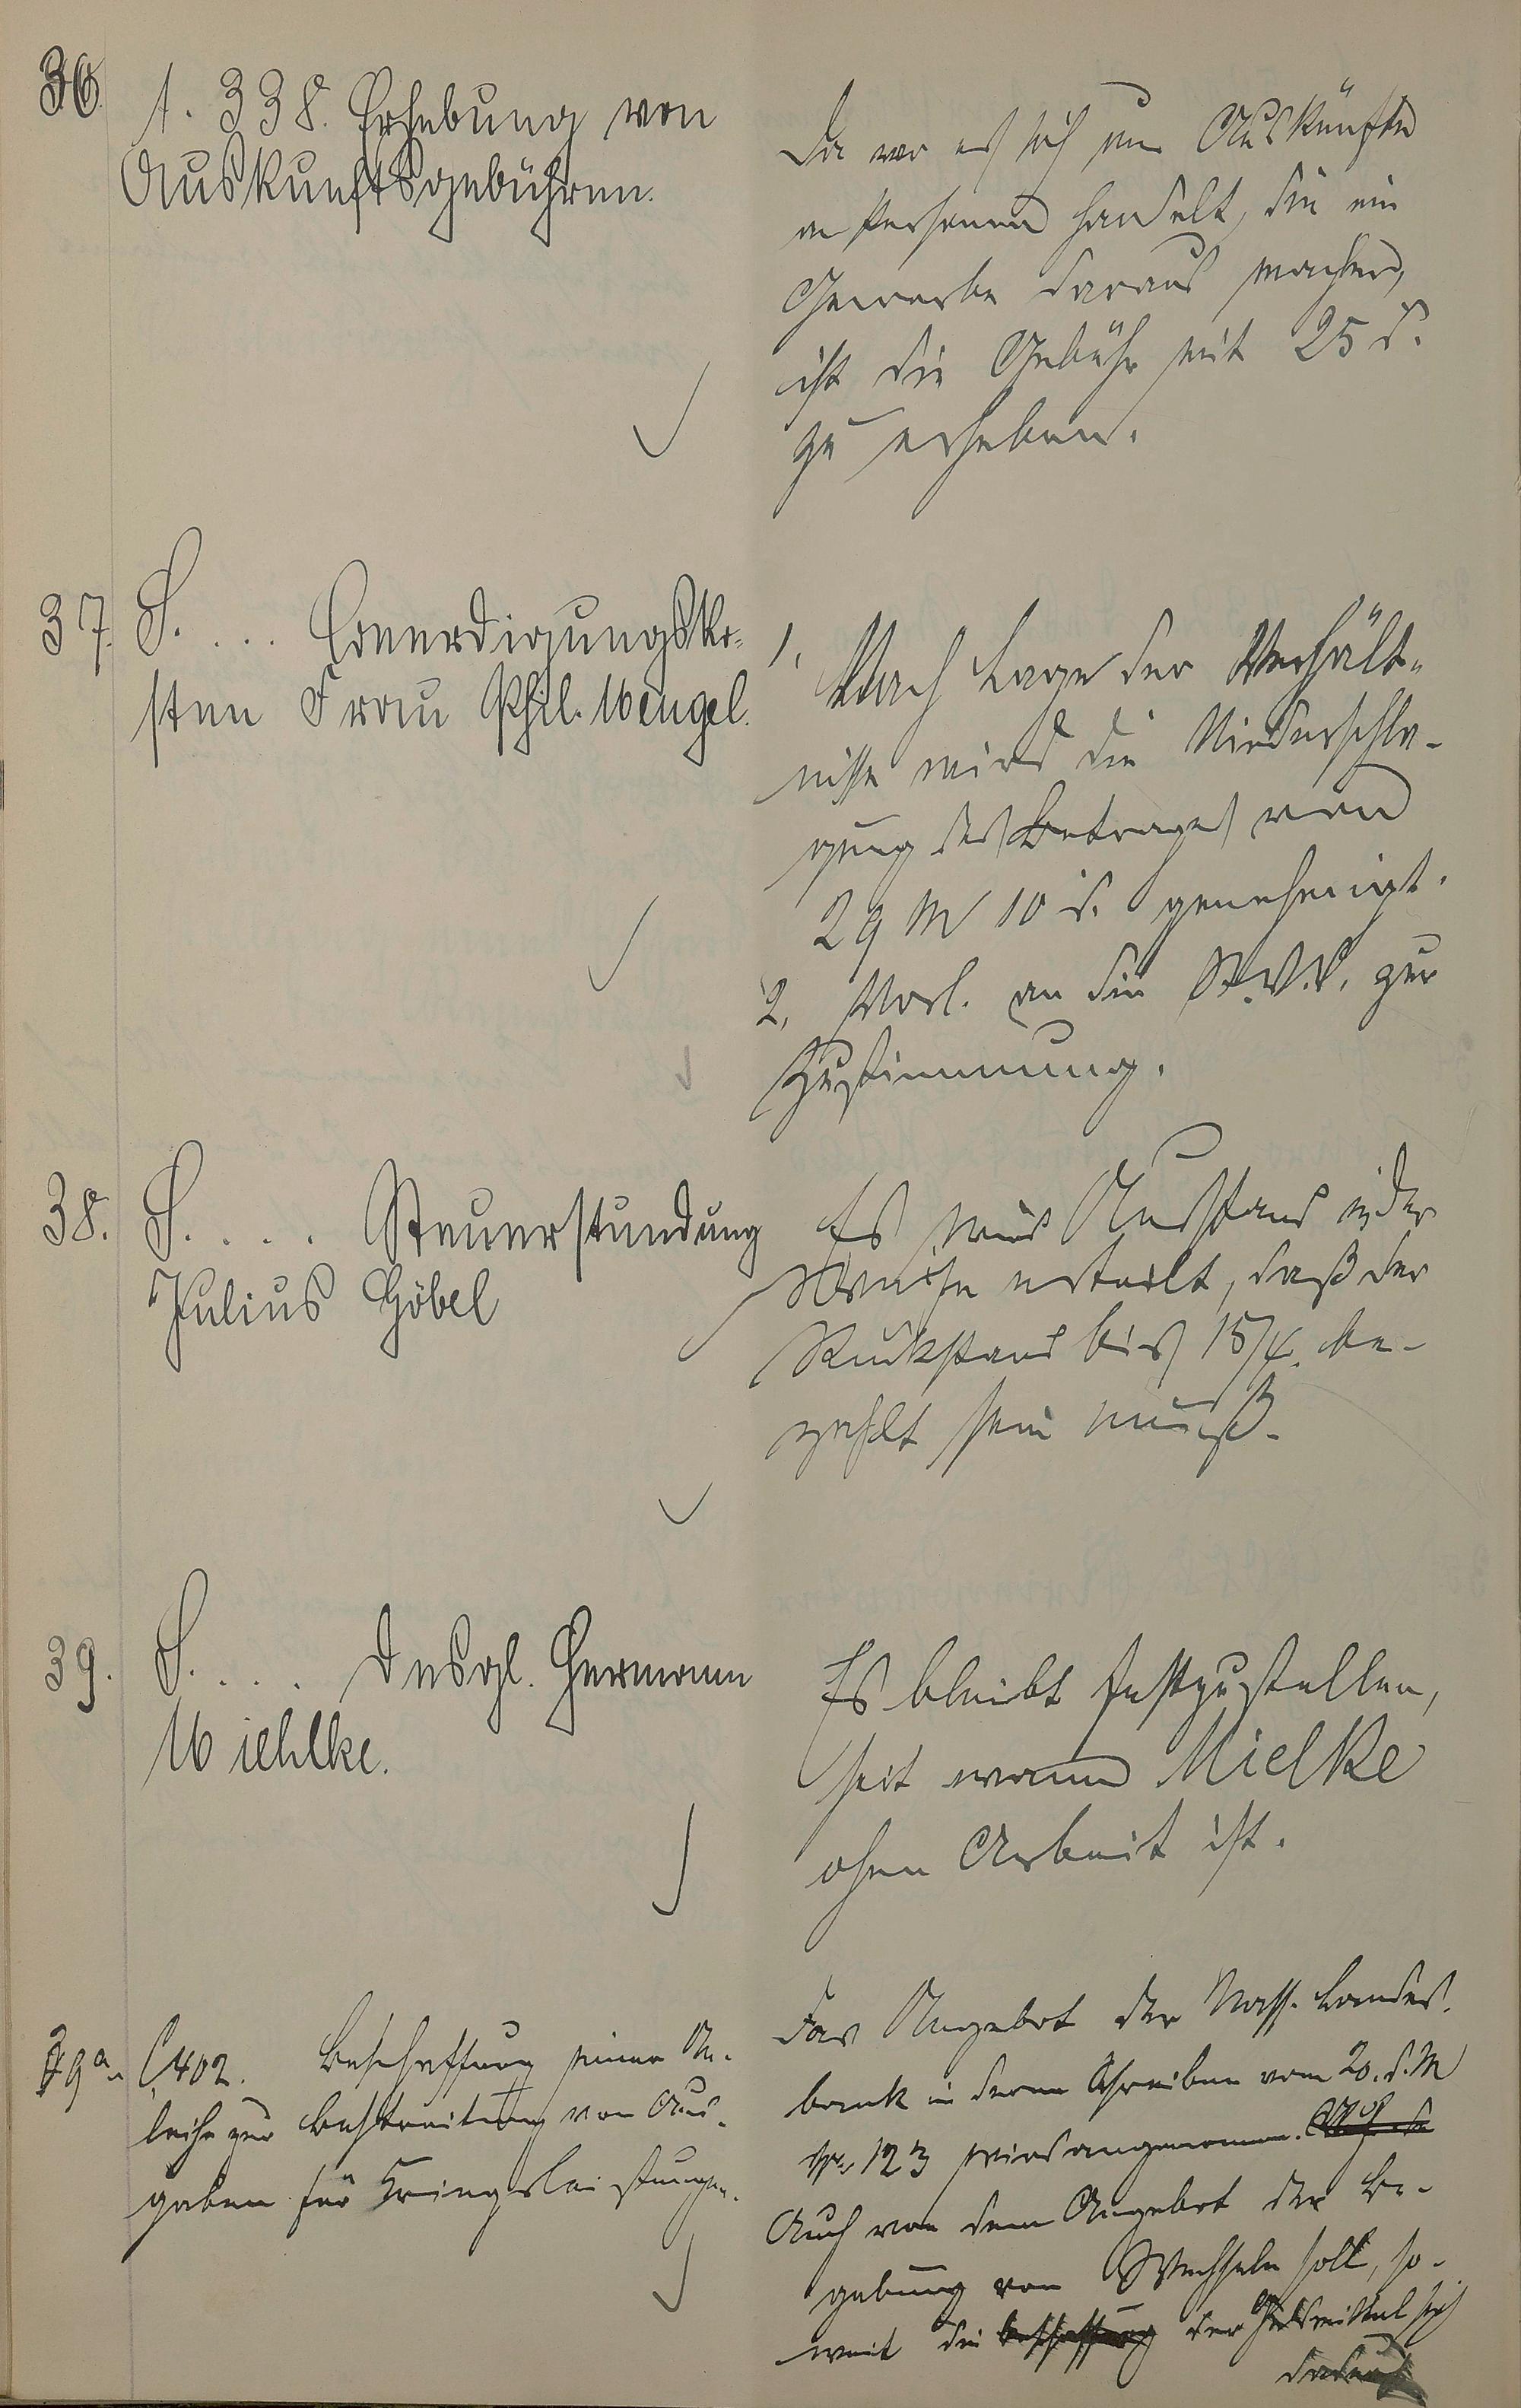 36. 1. 338. Erhebung von
Auskunftsgebühren.
Da wo es sich um Auskünfte
an Personen handelt, die ein
Gewerbe daraus machen,
ist die Gebühr mit 25 d.
zu erheben.
37. S. . . . Beerdigungsko-
sten Frau Phil. Mengel.
1. Nach Lage der Verhält-
nisse wird die Niederschla-
gung des Betrages von
29 M 10 d. genehmigt.
2. Vorl. an die St.V.V. zur
Zustimmung.
38. S. . . . Steuerstundung
Julius Göbel
Es wird Ausstand in der
Weise erteilt, daß der
Rückstand bis 15/4. be-
zahlt sein muß.
39. S. . . . Desgl. Hermann
Miehlke.
Es bleibt festzustellen,
seit wann Mielke
ohne Arbeit ist.
39a. C 402. Beschaffung einer An-
leihe zur Bestreitung von Aus-
gaben für Kriegsleistungen.
Das Angebot der Nass. Landes-
bank in deren Schreiben vom 20. d. M
123 wird angenommen.
Auch von dem Angebot der Be-
gebung von Wechseln soll, so-
weit die Beschaffung der Geldmittel sich